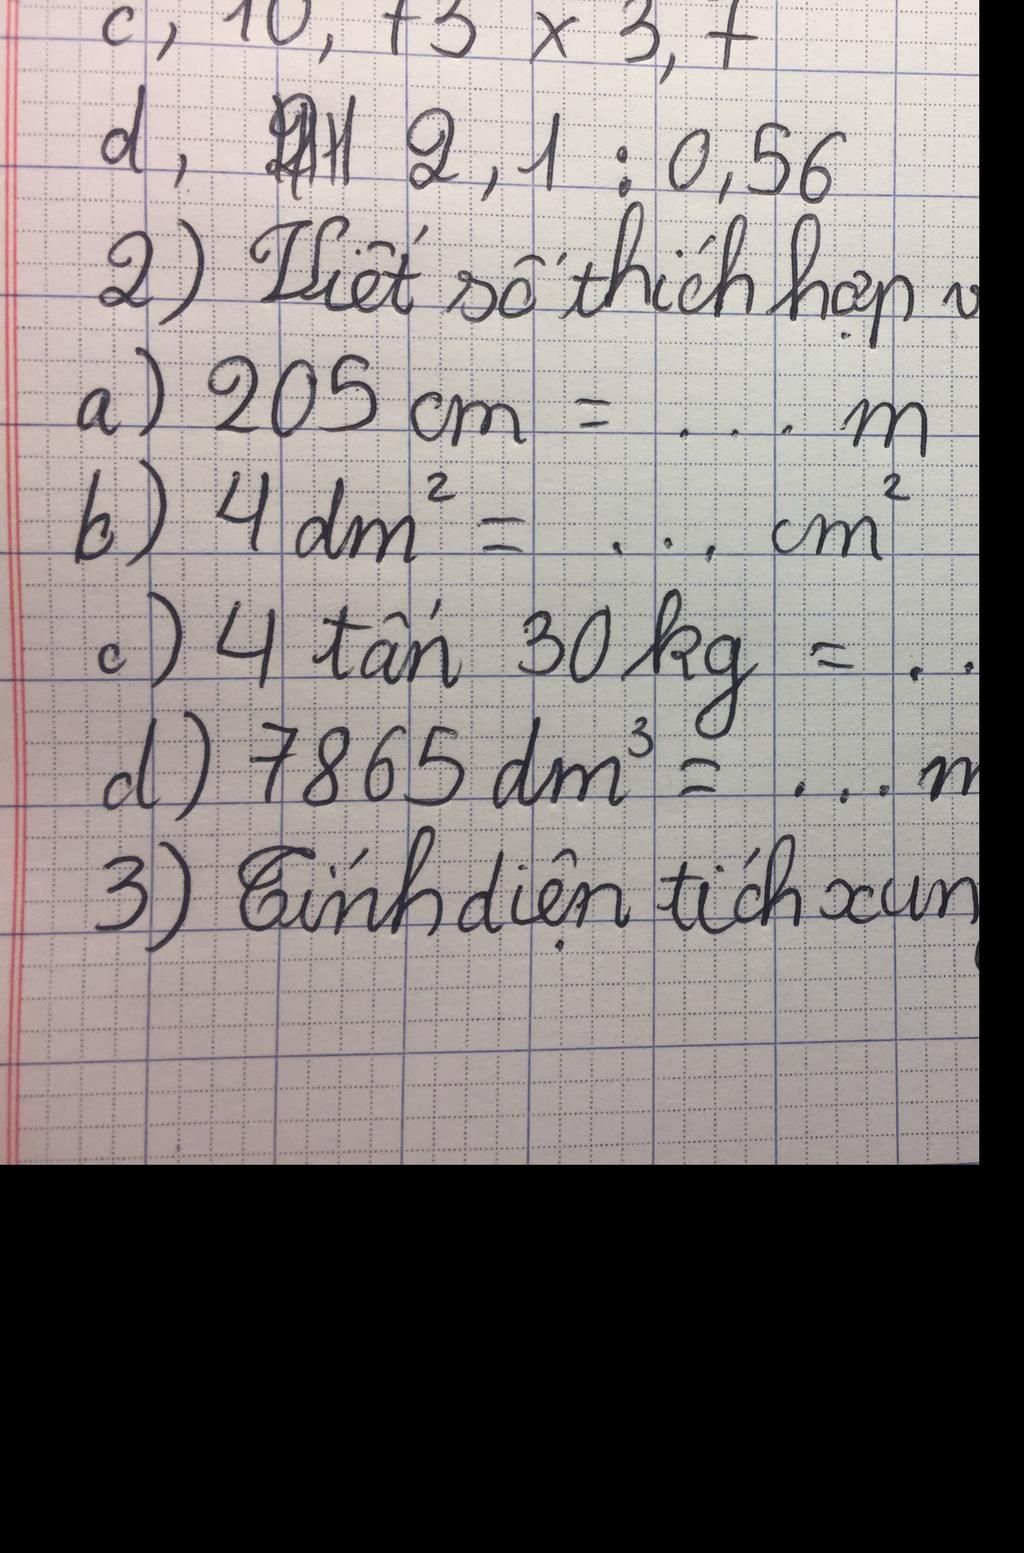 c, 10, 73 x 3,7
d, 2,1 : 0,56
2) Viết số thích hợp
a) 205 cm = ... m
b) 4 dm² = ... cm²
c) 4 tấn 30 kg = ..
d) 7865 dm³ = ... m
3) Tính diện tích xun